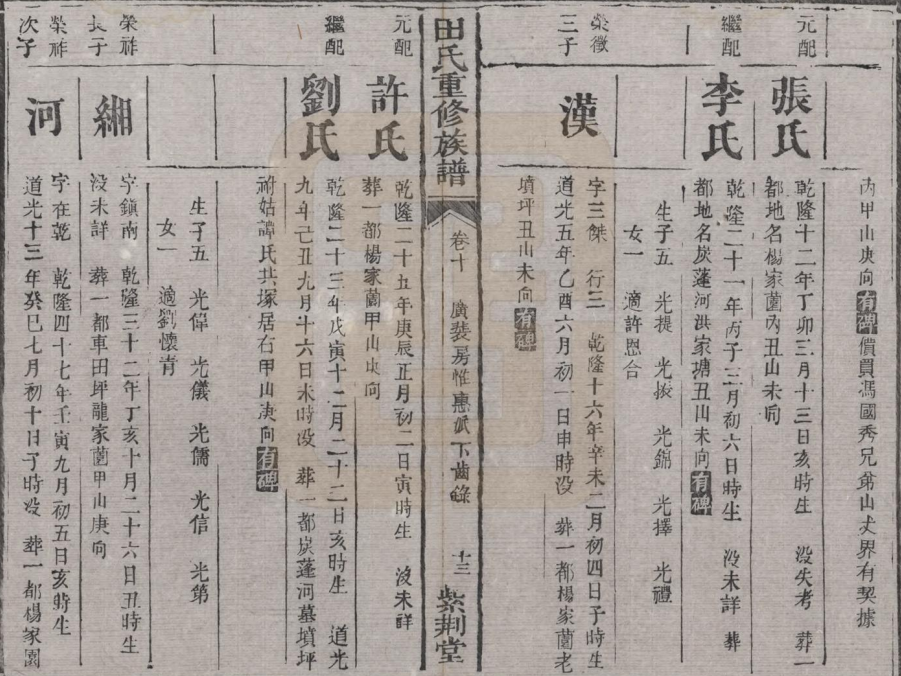 丙甲山庚向有碑價買馮國秀兄弟山丈界有契據
元配
張氏
乾隆十二年丁卯三月十三日亥時生 沒失考 葬一
都地名楊家薗丙丑山未向
繼配
李氏
乾隆二十一年丙子三月初六日時生 沒未詳 葬
都地名炭蓬河洪家塘丑山未向有碑
生子五 光提 光掞 光錦 光擇 光禮
女一 適許恩合
榮徵
三子
漢
字三傑 行三 乾隆十六年辛未二月初四日子時生
道光五年乙酉六月初一日申時沒 葬一都楊家薗老
墳坪丑山未向有碑
田氏重修族譜
卷十 廣裝房惟惠派下齒錄 十三
紫荆堂
元配
許氏
乾隆二十五年庚辰正月初二日寅時生 沒未詳
葬一都楊家薗甲山庚向
繼配
劉氏
乾隆二十三年戊寅十二月二十二日亥時生 道光
九年己丑九月十六日未時沒 葬一都炭蓬河墓墳坪
祔姑譚氏共塚居右甲山庚向有碑
生子五 光偉 光儀 光儒 光信 光第
女一 適劉懷青
榮祚
長子
緗
字鎮南 乾隆三十二年丁亥十月二十六日丑時生
沒未詳 葬一都車田坪龍家薗甲山庚向
榮祚
次子
河
字在乾 乾隆四十七年壬寅九月初五日亥時生
道光十三年癸巳七月初十日子時沒 葬一都楊家園